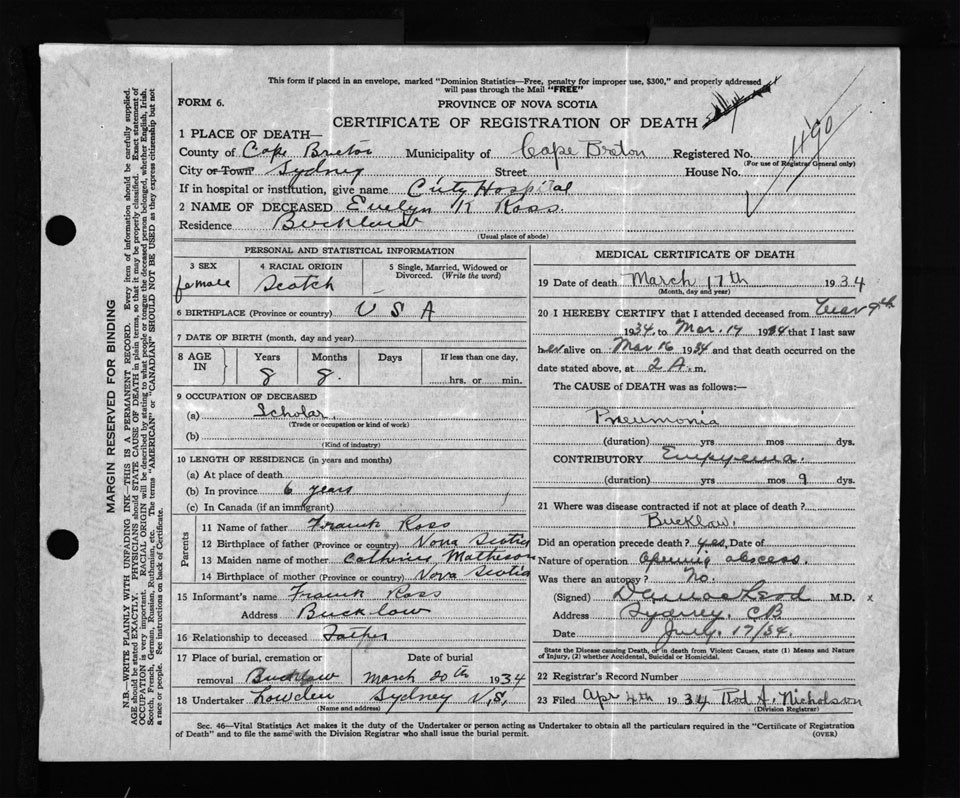 This form if placed in an envelope, marked "Dominion Statistics—Free, penalty for improper use, $300," and properly addressed
will pass through the Mail "FREE"
FORM 6.
PROVINCE OF NOVA SCOTIA
CERTIFICATE OF REGISTRATION OF DEATH
490
1 PLACE OF DEATH—
County of Cape Breton Municipality of Cape Breton Registered No.
(For use of Registrar General only)
City or Town Sydney Street House No.
If in hospital or institution, give name City Hospital
2 NAME OF DECEASED Evelyn K Ross
Residence Bucklaw
(Usual place of abode)
PERSONAL AND STATISTICAL INFORMATION
3 SEX female
4 RACIAL ORIGIN Scotch
5 Single, Married, Widowed or Divorced. (Write the word)
6 BIRTHPLACE (Province or country) U S A
7 DATE OF BIRTH (month, day and year)
8 AGE IN Years 8 Months 8 Days If less than one day, hrs. or min.
9 OCCUPATION OF DECEASED
(a) Scholar
(Trade or occupation or kind of work)
(b)
(Kind of industry)
10 LENGTH OF RESIDENCE (in years and months)
(a) At place of death
(b) In province 6 years
(c) In Canada (if an immigrant)
Parents
11 Name of father Frank Ross
12 Birthplace of father (Province or country) Nova Scotia
13 Maiden name of mother Catherine Matheson
14 Birthplace of mother (Province or country) Nova Scotia
15 Informant's name Frank Ross
Address Bucklaw
16 Relationship to deceased Father
17 Place of burial, cremation or removal Bucklaw
Date of burial March 20th 1934
18 Undertaker Lowden Sydney N.S.
(Name and address)
MEDICAL CERTIFICATE OF DEATH
19 Date of death March 17th 1934
(Month, day and year)
20 I HEREBY CERTIFY that I attended deceased from 9th
1934 to Mar. 17 1934 that I last saw
her alive on Mar 16 1934 and that death occurred on the
date stated above, at 2 A. m.
The CAUSE of DEATH was as follows:—
Pneumonia
(duration) yrs mos dys.
CONTRIBUTORY Empyema.
(duration) yrs mos 9 dys.
21 Where was disease contracted if not at place of death?
Bucklaw.
Did an operation precede death? yes, Date of
Nature of operation Opening abscess.
Was there an autopsy? No.
(Signed) M.D. x
Address Sydney, CB
Date 17/34.
State the Disease causing Death, or in death from Violent Causes, state (1) Means and Nature
of Injury, (2) whether Accidental, Suicidal or Homicidal.
22 Registrar's Record Number
23 Filed Apr 4th 1934 Rod A. Nicholson
(Division Registrar)
Sec. 46—Vital Statistics Act makes it the duty of the Undertaker or person acting as Undertaker to obtain all the particulars required in the "Certificate of Registration
of Death" and to file the same with the Division Registrar who shall issue the burial permit.
(OVER)
MARGIN RESERVED FOR BINDING
N.B.—WRITE PLAINLY WITH UNFADING INK—THIS IS A PERMANENT RECORD. Every item of information should be carefully supplied.
AGE should be stated EXACTLY. PHYSICIANS should STATE CAUSE OF DEATH in plain terms, so that it may be properly classified. Exact statement of
OCCUPATION is very important. RACIAL ORIGIN will be described by stating to what people or tongue the deceased person belonged, whether English, Irish,
Scotch, French, German, Russian, Ruthenian, etc. The terms "AMERICAN" or "CANADIAN" SHOULD NOT BE USED as they express citizenship but not
a race or people. See instructions on back of Certificate.